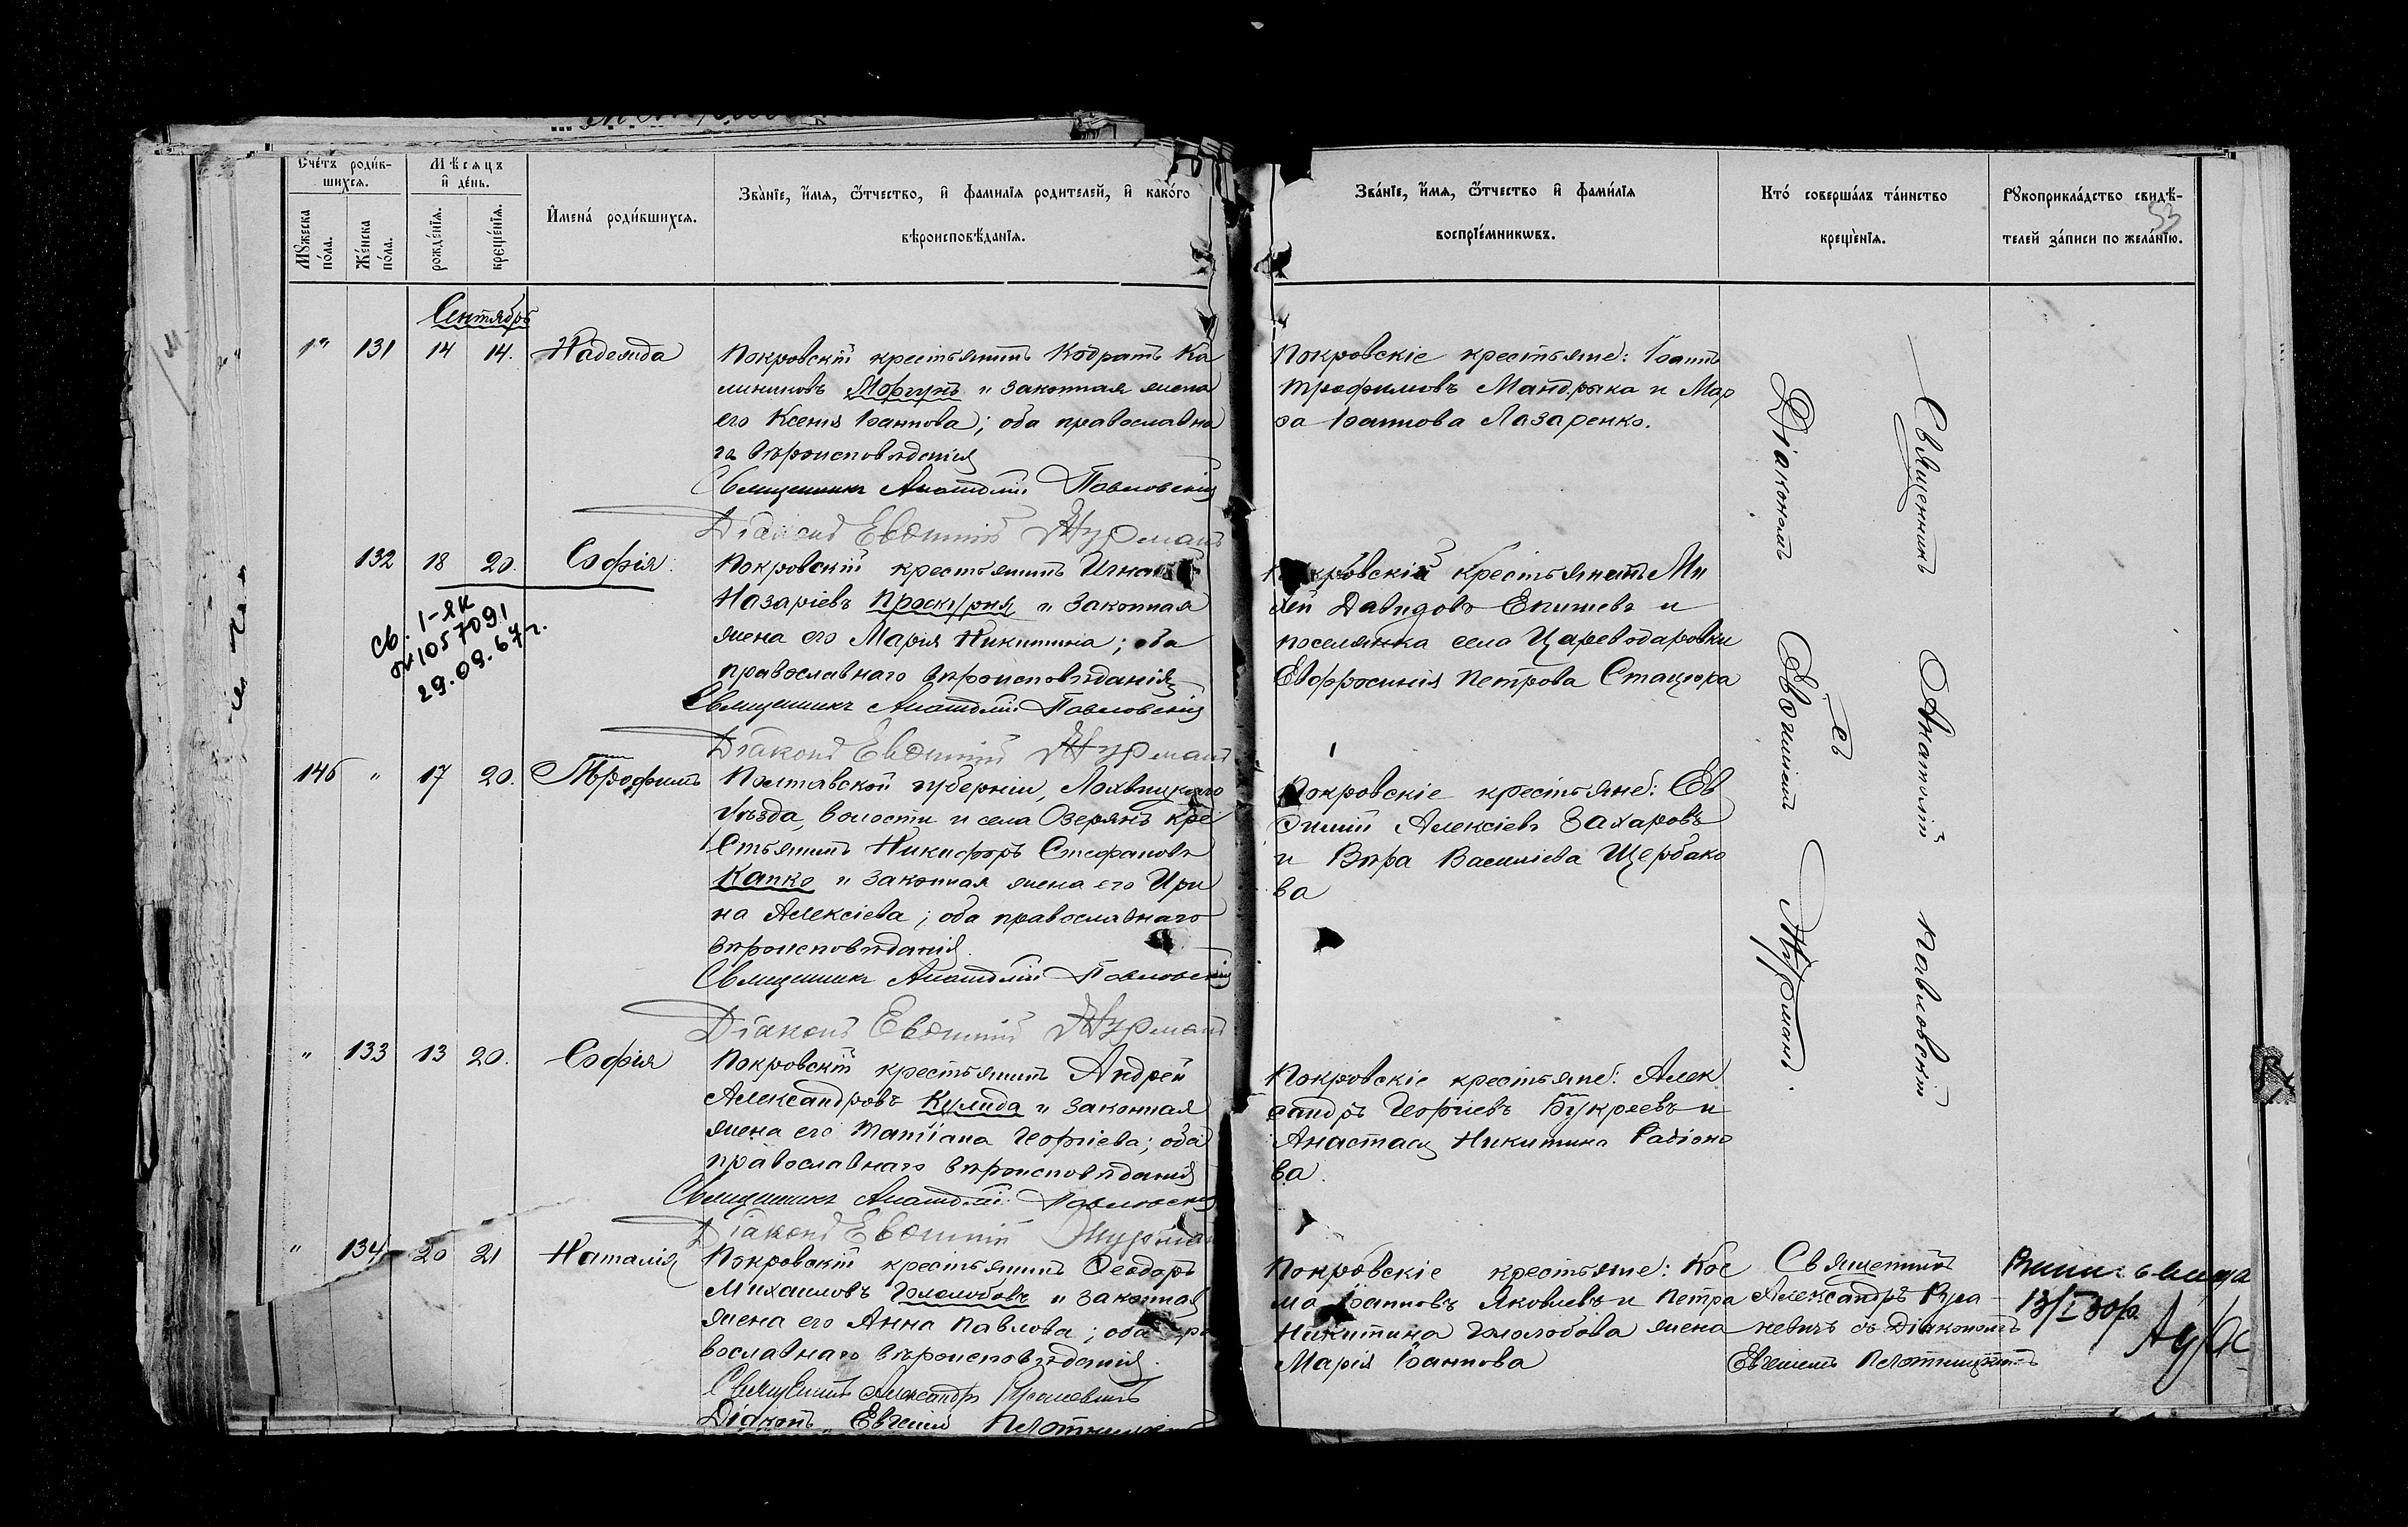 Счетъ родив-
шихся.
Мѣсяцъ
и день.
Имена родившихся.
Званіе, имя, ѿтчество, и фамилія родителей, и какого
вѣроисповѣданія.
Мужеска
пола.
Женска
пола.
рожденія.
крещенія.
Званіе, имя, ѿтчество и фамилія
воспріемникѡвъ.
Кто совершалъ таинство
крещенія.
Рукоприкладство свидѣ-
телей записи по желанію.
53
Сентябрь
131 14 14. Надежда
Покровскій крестьянинъ Кодратъ Ка
линиковъ Моргунъ и законная жена
его Ксенія Іоаннова; оба православна
го вѣроисповѣданія
Священникъ Анатолій Павловскій
Діаконъ Евѳимій Журманъ
Покровскіе крестьяне: Іоаннъ
Трофимовъ Мандрыка и Мар
ѳа Іоаннова Лазаренко.
132 18 20. Софія.
Св. I-ЯК
№ 1057091
29.09.67г.
Покровскій крестьянинъ
Назаріевъ Проскурня и законная
жена его Марія Никитина; оба
православнаго вѣроисповѣданія
Священникъ Анатолій Павловскій
Діаконъ Евѳимій Журманъ
Покровскій крестьянинъ Ми
хей Давидовъ Епишевъ и
поселянка села Цареводаровки
Евфросинія Петрова Стацюра
146 " 17 20. Трофимъ
Полтавской губерніи, Лохвицкаго
уѣзда, волости и села Озерянъ кре
стьянинъ Никифоръ Стефановъ
Капко и законная жена его Ири
на Алексіева; оба православнаго
вѣроисповѣданія.
Священникъ Анатолій Павловскій
Діаконъ Евѳимій Журманъ
Покровскіе крестьяне: Ев
ѳимій Алексіевъ Захаровъ
и Вѣра Василіева Щербако
ва
" 133 13 20. Софія
Покровскій крестьянинъ Андрей
Александровъ Кулида и законная
жена его Татіана Георгіева; оба
православнаго вѣроисповѣданія
Священникъ Анатолій Павловскій
Діаконъ Евѳимій Журманъ
Покровскіе крестьяне: Алек
сандръ Георгіевъ Букреевъ и
Анастасія Никитина Радіоно
ва.
Священникъ Анатолій Павловскій
съ
Діакономъ Евѳиміемъ Журманъ.
" 134 20 21 Наталія
Покровскій крестьянинъ Ѳеодоръ
Михаиловъ Гололобовъ и законная
жена его Анна Павлова; оба пра
вославнаго вѣроисповѣданія.
Священникъ Александръ Русаневичъ
Діаконъ Евгеній Плотницкій
Покровскіе крестьяне: Кос
ма Іоанновъ Яковлевъ и Петра
Никитина Гололобова жена
Марія Іоаннова
Священникъ
Александръ Руса-
невичъ съ Діакономъ
Евгеніемъ Плотницкимъ
13/I 30г.